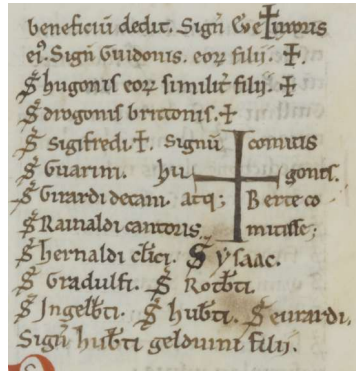 beneficiū dedit. Signū ux✝oris
ei⁹. Signū Guidonis. eorū filii. ✝
S̄ hugonis eorū similit̄ filii. ✝
S̄ drogonis brittonis. ✝
S̄ sigifredi ✝. Signū comitis
S̄ Guarini. hu gonis.
S̄ Girardi decani. atq; Berte co
S̄ Rainaldi cantoris. mitisse;
S̄ hernaldi cłici. S̄ ysaac.
S̄ Gradulfi. S̄ Rotb̄ti.
S̄ Ingelb̄ti. S̄ hub̄ti. S̄ eurardi.
Signū hub̄ti gelduini filii.